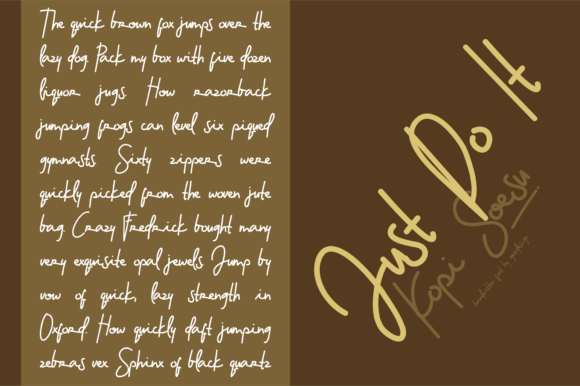 The quick brown fox jumps over the
lazy dog. Pack my box with five dozen
liquor jugs. How razorback
jumping frogs can level six piqued
gymnasts. Sixty zippers were
quickly picked from the woven jute
bag. Crazy Fredrick bought many
very exquisite opal jewels. Jump by
vow of quick, lazy strength in
Oxford. How quickly daft jumping
zebras vex. Sphinx of black quartz
Just Do It
Kopi Soesu
handwritten font by